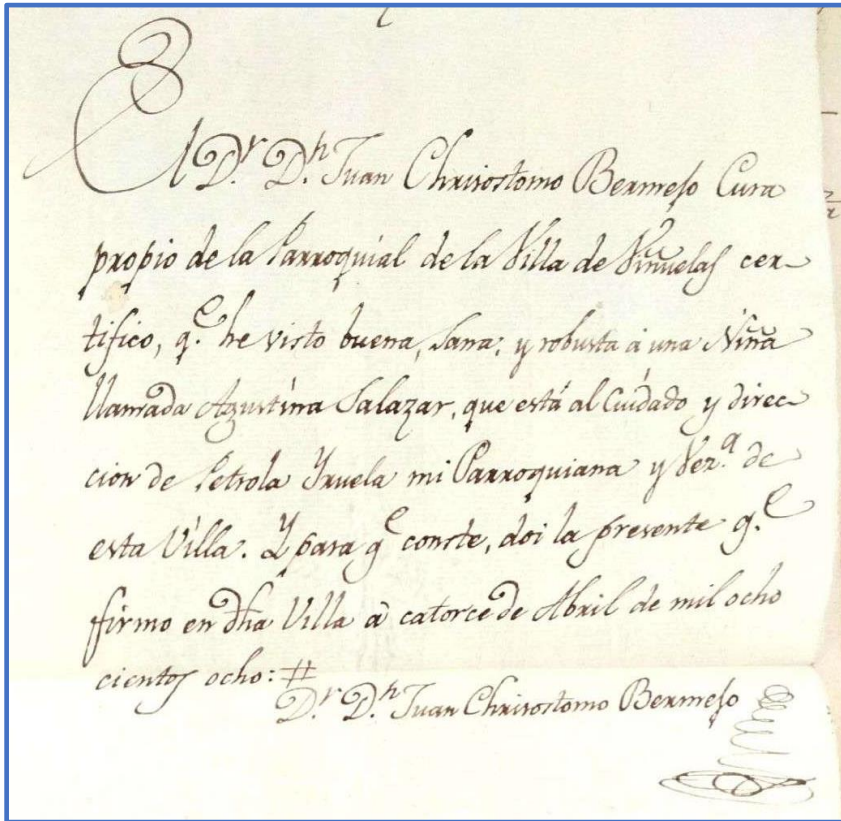 El D.r D.n Juan Chrisostomo Bermejo Cura
propio de la Parroquial de la Villa de Viñuelas cer-
tifico, q.e he visto buena, sana, y robusta á una Niña
llamada Agustina Salazar, que está al Cuidado y direc-
cion de Petrola Yruela mi Parroquiana y Vez.a de
esta Villa. Y para q.e conste, doi la presente q.e
firmo en dha Villa á catorce de Abril de mil ocho
cientos ocho: #
D.r D.n Juan Chrisostomo Bermejo